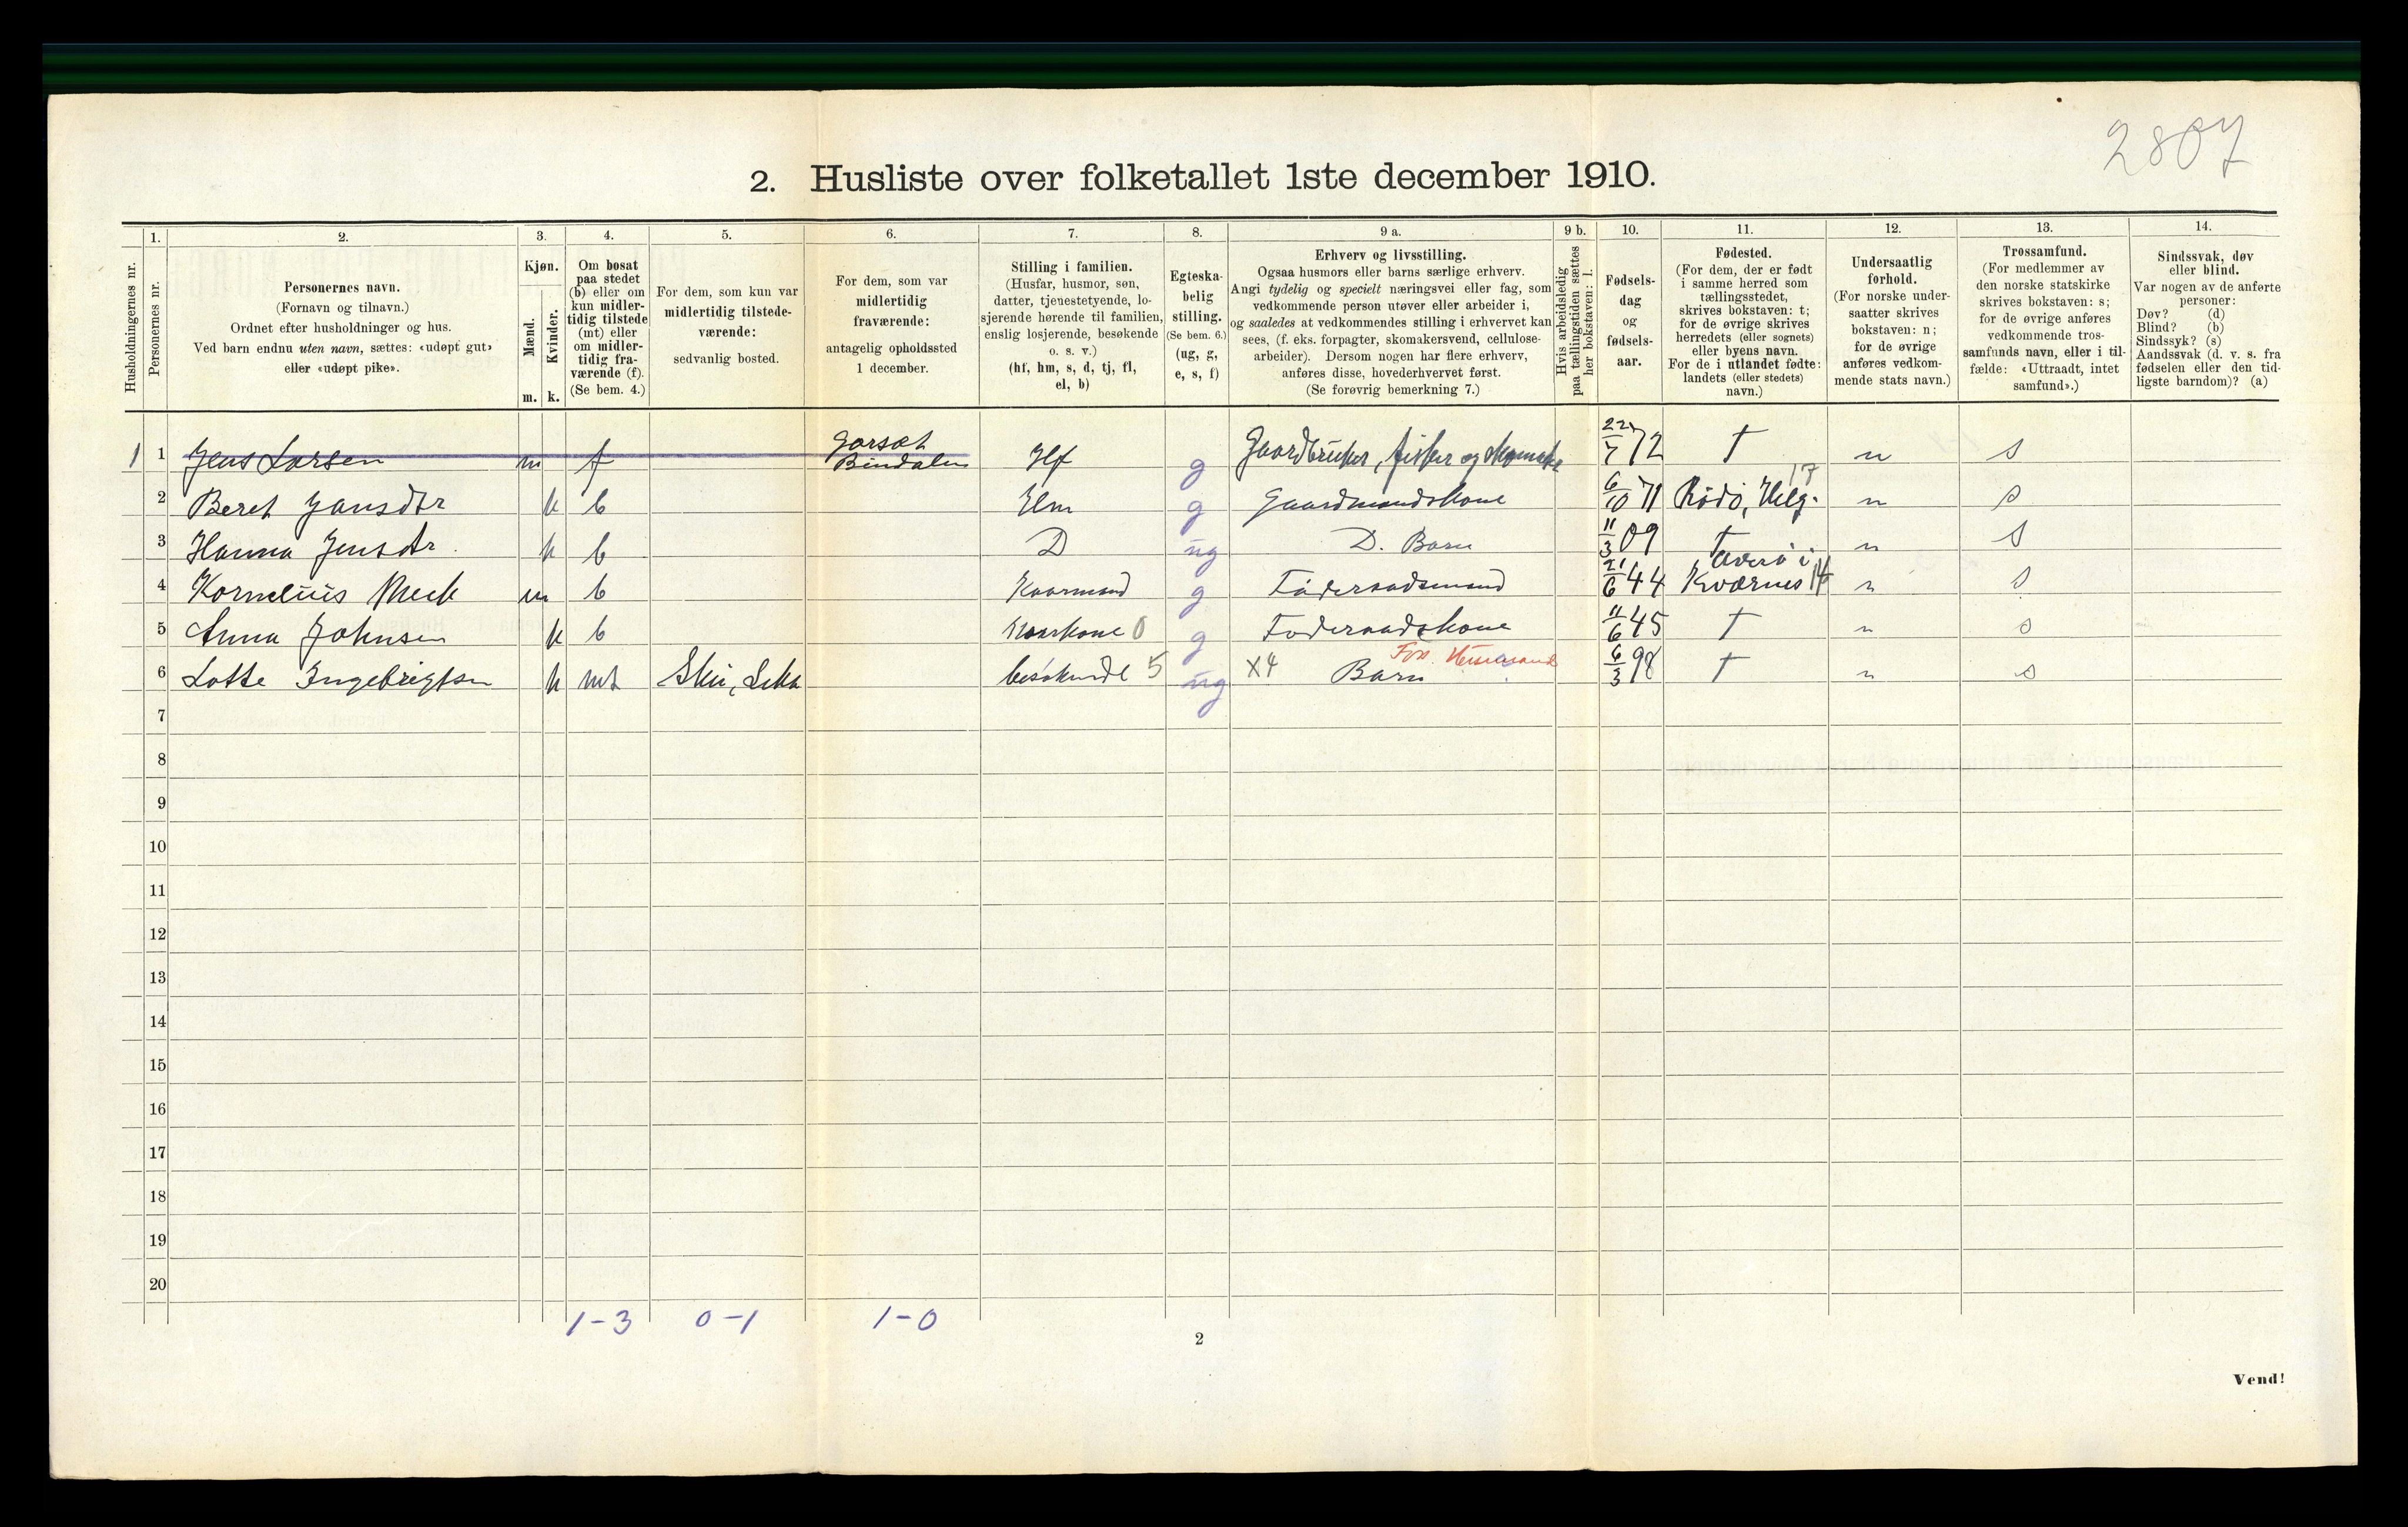 2807
2. Husliste over folketallet 1ste december 1910.
Husholdningernes nr.
1.
Personernes nr.
2.
Personernes navn.
(Fornavn og tilnavn.)
Ordnet efter husholdninger og hus.
Ved barn endnu uten navn, sættes: «udøpt gut»
eller «udøpt pike».
3.
Kjøn.
Mænd.
Kvinder.
m. k.
4.
Om bosat
paa stedet
(b) eller om
kun midler-
tidig tilstede
(mt) eller
om midler-
tidig fra-
værende (f).
(Se bem. 4.)
5.
For dem, som kun var
midlertidig tilstede-
værende:
sedvanlig bosted.
6.
For dem, som var
midlertidig
fraværende:
antagelig opholdssted
1 december.
7.
Stilling i familien.
(Husfar, husmor, søn,
datter, tjenestetyende, lo-
sjerende hørende til familien,
enslig losjerende, besøkende
o. s. v.)
(hf, hm, s, d, tj, fl,
el, b)
8.
Egteska-
belig
stilling.
(Se bem. 6.)
(ug, g,
e, s, f)
9 a.
Erhverv og livsstilling.
Ogsaa husmors eller barns særlige erhverv.
Angi tydelig og specielt næringsvei eller fag, som
vedkommende person utøver eller arbeider i,
og saaledes at vedkommendes stilling i erhvervet kan
sees, (f. eks. forpagter, skomakersvend, cellulose-
arbeider). Dersom nogen har flere erhverv,
anføres disse, hovederhvervet først.
(Se forøvrig bemerkning 7.)
9 b.
Hvis arbeidsledig
paa tællingstiden sættes
her bokstaven: l.
10.
Fødsels-
dag
og
fødsels-
aar.
11.
Fødested.
(For dem, der er født
i samme herred som
tællingsstedet,
skrives bokstaven: t;
for de øvrige skrives
herredets (eller sognets)
eller byens navn.
For de i utlandet fødte:
landets (eller stedets)
navn.)
12.
Undersaatlig
forhold.
(For norske under-
saatter skrives
bokstaven: n;
for de øvrige
anføres vedkom-
mende stats navn.)
13.
Trossamfund.
(For medlemmer av
den norske statskirke
skrives bokstaven: s;
for de øvrige anføres
vedkommende tros-
samfunds navn, eller i til-
fælde: «Uttraadt, intet
samfund».)
14.
Sindssvak, døv
eller blind.
Var nogen av de anførte
personer:
Døv? (d)
Blind? (b)
Sindssyk? (s)
Aandssvak (d. v. s. fra
fødselen eller den tid-
ligste barndom)? (a)
1 1 Jens Larsen m f Bindalen Hf g Gaardbruker, fisker og 22/7 72 t n s
2 Beret Jansdtr k b Hm g Gaardmandskone 6/10 71 Rödö, Helg. 17 n s
3 Hanna Jensdtr. k b D ug D. Barn 11/3 09 t n s
4 Kornelius m b Kaarmand g Föderaadsmand 21/6 44 Averö i Kværnes n s
5 Anna Johnsen k b Kaarkone 0 g Foderaadskone 11/6 45 t n s
6 Lotte Ingebrigtsen k mt Leka besökende 5 ug X4 Barn 6/3 98 t n s
7
8
9
10
11
12
13
14
15
16
17
18
19
20
1-3 0-1 1-0
2
Vend!